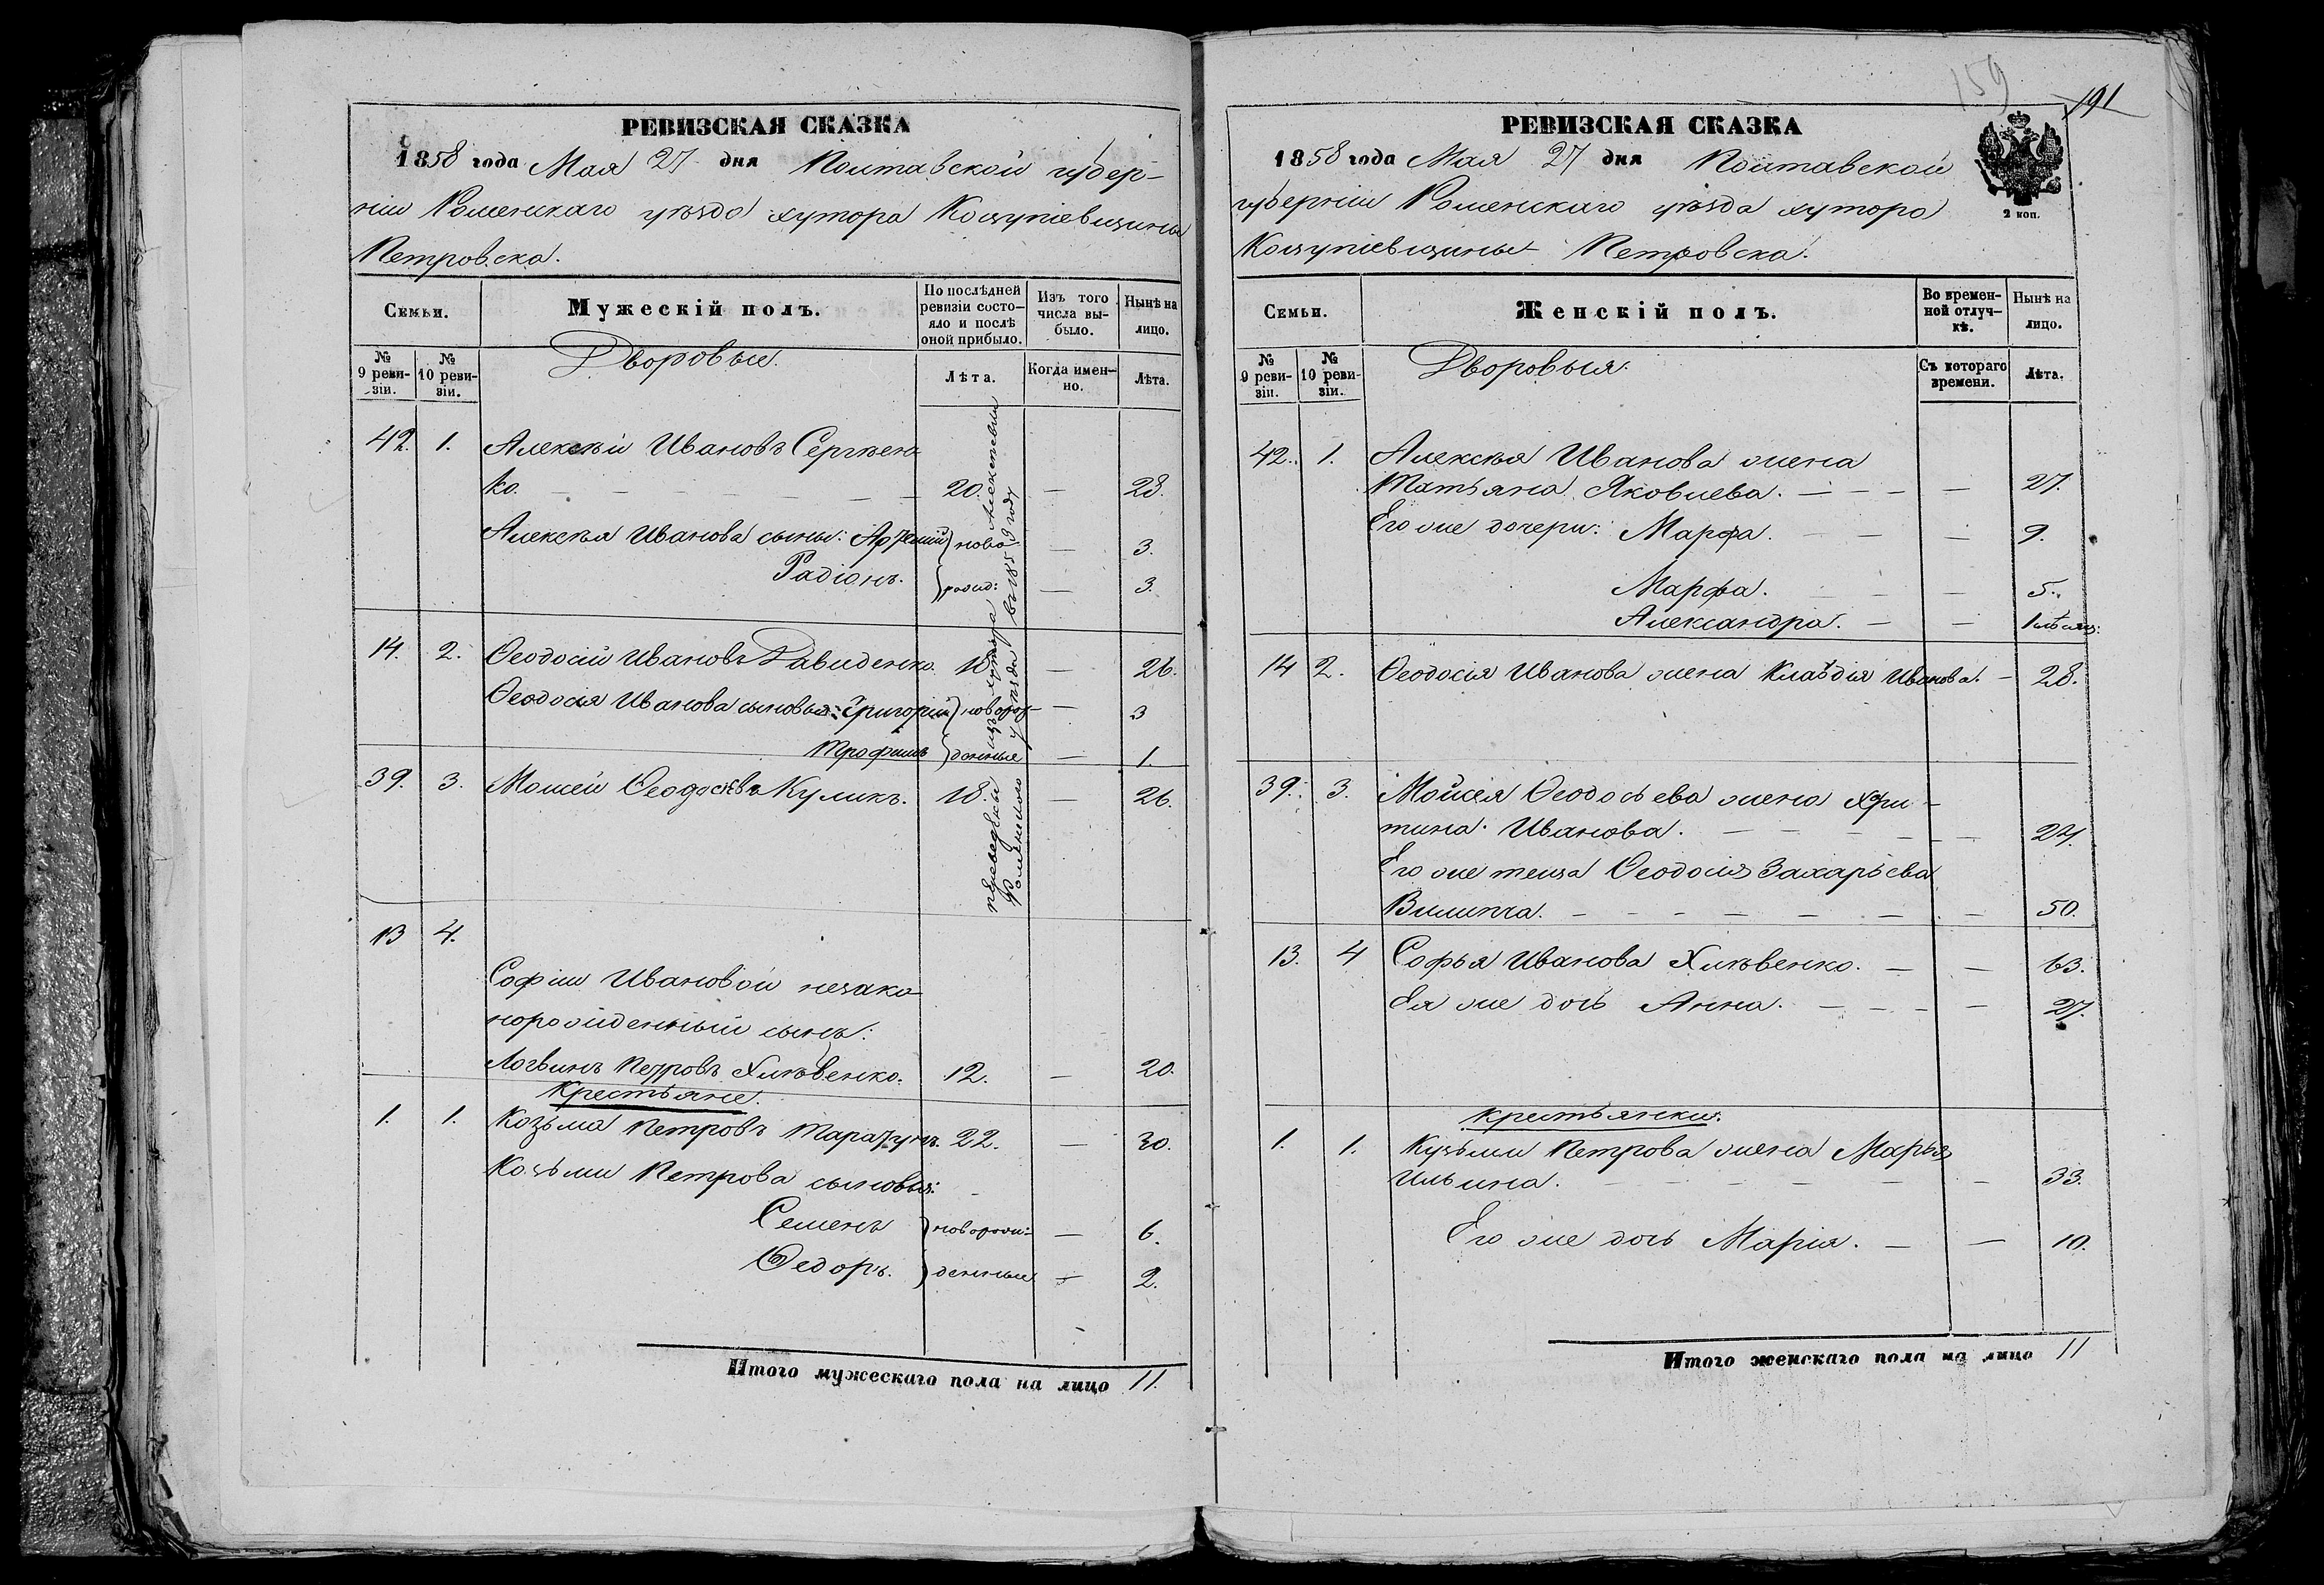 РЕВИЗСКАЯ СКАЗКА
1858 года Мая 27 дня Полтавской губер-
ніи Роменскаго уѣзда хутора Кощуніевщины
Петровска.
Семьи.
Мужескій полъ.
По послѣдней ревизіи состо-яло и послѣ оной прибыло.
Изъ того числа вы-было.
Нынѣ на лицо.
№ 9 реви-зіи.
№ 10 реви-зіи.
Дворовые.
Лѣта.
Когда имен-но.
Лѣта.
42. 1. Алексѣй Ивановъ Сергѣен-
ко. 20. — 28.
Алексѣя Иванова сыны: Артемій ново — 3.
Радіонъ. рожд: — 3.
14. 2. Ѳеодосій Ивановъ Давиденко. 18 — 26.
Ѳеодосія Иванова сыновья: Григорій новорож- — 3
Трофимъ денные — 1.
39. 3. Моисей Ѳеодосѣевъ Куликъ. 18. — 26.
переведены изъ хутора
Роменского уѣзда въ 1859 году
13 4.
Софіи Ивановой незако-
норожденный сынъ:
Логвинъ Петровъ Хилѣвенко. 12. — 20.
Крестьяне.
1. 1. Козьма Петровъ Таратунъ. 22. — 30.
Козьми Петрова сыновья:
Семенъ новорож- — 6.
Ѳедоръ. денные — 2.
Итого мужескаго пола на лицо 11.
159
191
РЕВИЗСКАЯ СКАЗКА
1858 года Мая 27 дня Полтавской
губерніи Роменскаго уѣзда хутора
2 коп.
Кощуніевщины Петровска.
Семьи.
Женскій полъ.
Во времен-ной отлуч-кѣ.
Нынѣ на лицо.
№ 9 реви-зіи.
№ 10 реви-зіи.
Дворовыя.
Съ котораго времени.
Лѣта.
42. 1. Алексѣя Иванова жена
Татьяна Яковлева. — — 27.
Его же дочери: Марфа. — — 9.
Марфа. — — 5.
Александра. — — 1 мѣсяц:
14 2. Ѳеодосія Иванова жена Клавдія Иванова. — 28.
39. 3. Мойсея Ѳеодосьева жена Хри-
тина Иванова. — — 24.
Его же теща Ѳеодосія Захарьева
— — 50.
13. 4 Софья Иванова Хилѣвенко. — — 63.
Ея же дочь Анна. — — 27.
Крестьянки.
1. 1. Кузьми Петрова жена Марья
Ильина. — — 33.
Его же дочь Марія. — — 10.
Итого женскаго пола на лицо 11